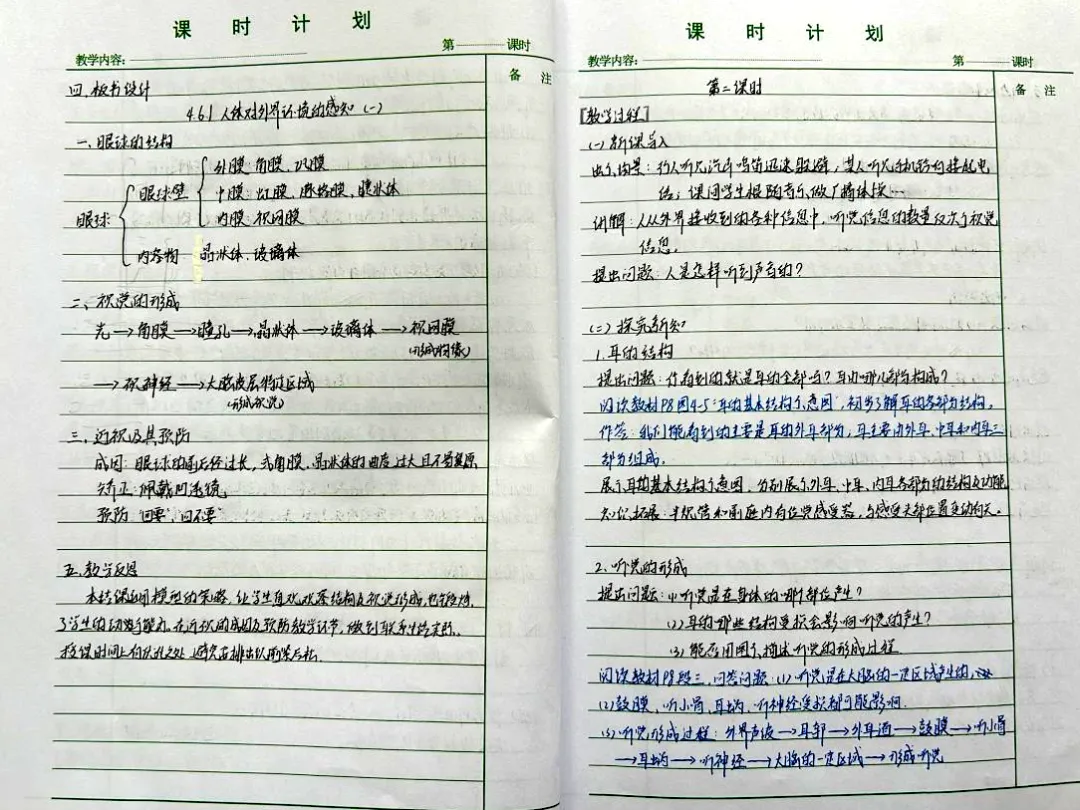 课 时 计 划
教学内容: 第 课时
备 注
四、板书设计
4.6.1 人体对外界环境的感知（一）
一、眼球的结构
眼球
眼球壁
外膜: 角膜、巩膜
中膜: 虹膜、脉络膜、睫状体
内膜: 视网膜
内容物: 晶状体、玻璃体
二、视觉的形成
光→角膜→瞳孔→晶状体→玻璃体→视网膜
(形成物像)
→视神经→大脑皮层特定区域
(形成视觉)
三、近视及其预防
成因: 眼球的前后径过长, 或角膜、晶状体的曲度过大且不易复原
矫正: 佩戴凹透镜
预防 "四要", 四不要"
五、教学反思
本结课运用模型的策略, 让学生直观观察结构及视觉形成, 也锻炼
了学生的动手能力, 在近视的成因及预防教学环节, 做到联系生活实际。
授课时间上有不足之处
课 时 计 划
教学内容: 第 课时
备 注
第二课时
[教学过程]
(一) 新课导入
出示情景: 行人听见汽车鸣笛迅速躲避, 某人听见手机铃响接起电
话; 课间学生根随音乐做广播体操…
讲解: 人从外界接收到的各种信息中, 听觉信息的数量仅次于视觉
信息。
提出问题: 人是怎样听到声音的?
(二) 探究新知
1. 耳的结构
提出问题: 你看到的就是耳的全部吗? 耳由哪几部分构成?
阅读教材P8图4-5"耳的基本结构示意图", 初步了解耳的各部分结构。
作答: 我们能看到的主要是耳的外耳部分, 耳主要由外耳、中耳和内耳三
部分组成。
展示耳的基本结构示意图, 分别展示外耳、中耳、内耳各部分的结构及功能
知识拓展: 半规管和前庭内有位觉感受器, 与感受头部位置变动有关。
2. 听觉的形成
提出问题: (1) 听觉是在身体的哪个部位产生?
(2) 耳的哪些结构受损会影响听觉的产生?
(3) 能否用图示描述听觉的形成过程
阅读教材P8段三, 回答问题: (1) 听觉是在大脑的一定区域产生的,
(2) 鼓膜、听小骨、耳蜗、听神经受损都可能影响.
(3) 听觉形成过程: 外界声波→耳郭→外耳道→鼓膜→听小骨
→耳蜗→听神经→大脑的一定区域→形成听觉